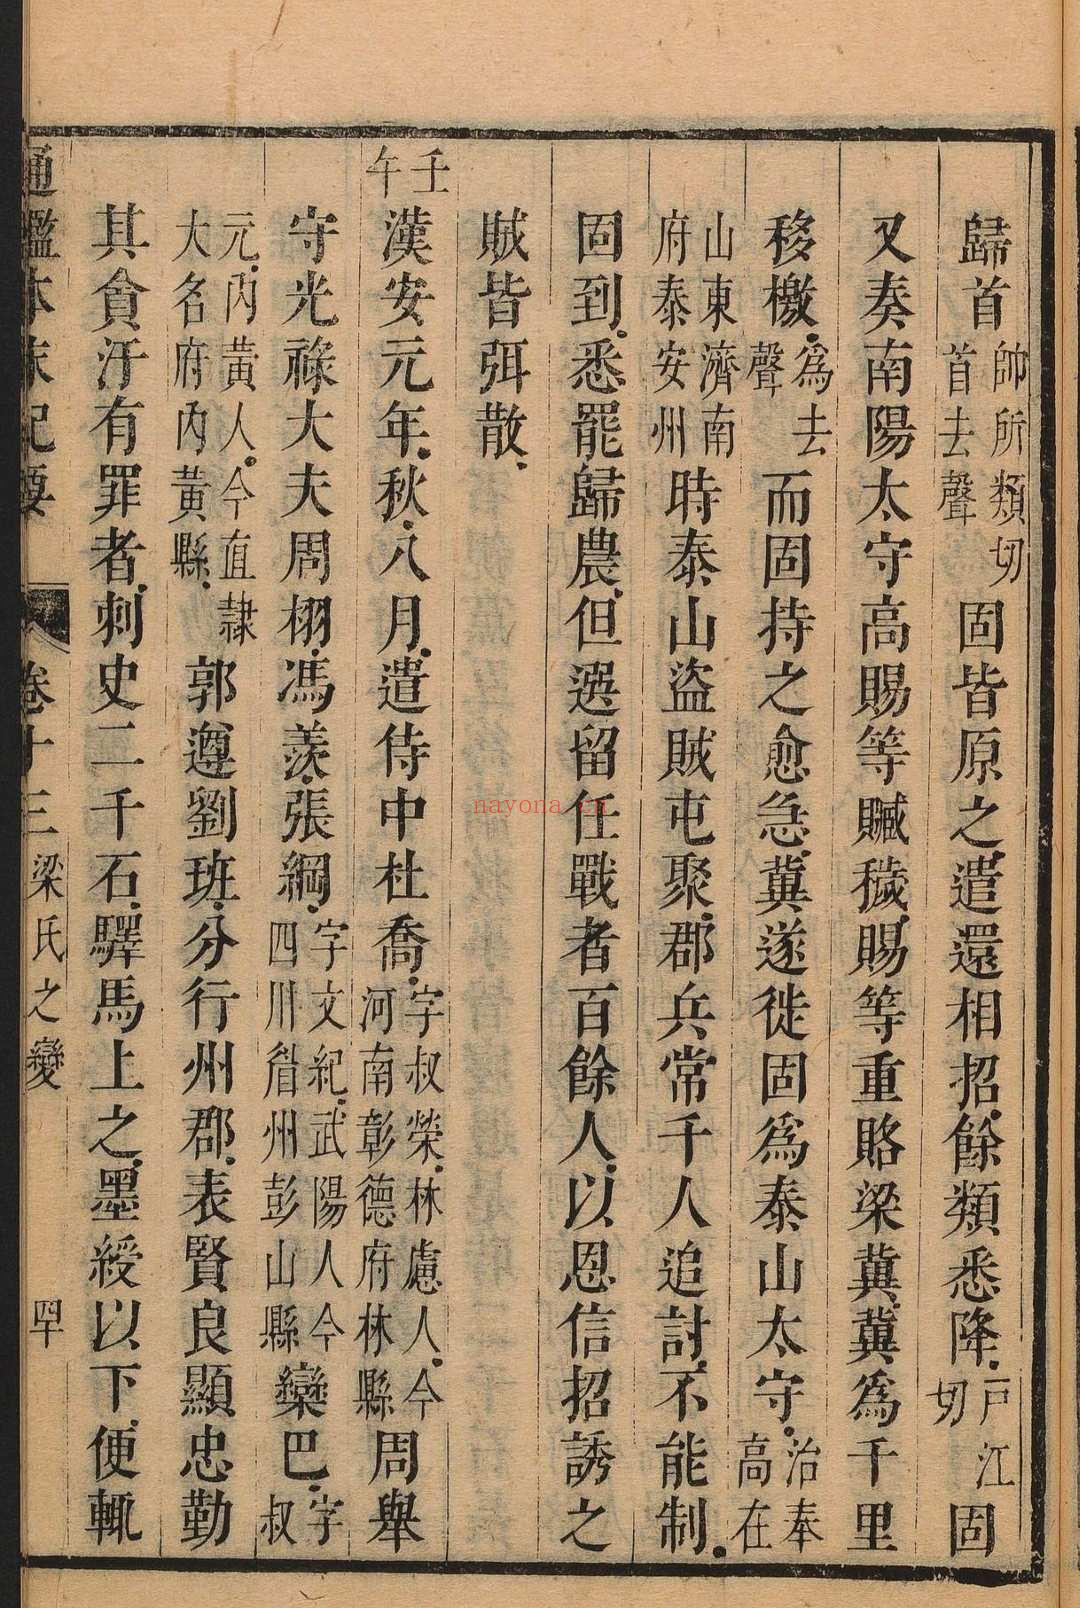 歸首帥所類切首去聲固皆原之遣還相招餘類悉降戸江切固
又奏南陽太守高賜等贓穢賜等重賂梁冀冀爲千里
移檄爲去聲而固持之愈急冀遂徙固爲泰山太守治奉高在
山東濟南府泰安州時泰山盜賊屯聚郡兵常千人追討不能制
固到悉罷歸農但選留任戰者百餘人以恩信招誘之
賊皆弭散
壬午漢安元年秋八月遣侍中杜喬字叔榮林慮人今河南彰德府林縣周舉
守光祿大夫周栩馮羨張綱字文紀武陽人今四川眉州彭山縣欒巴字叔
元內黃人今直隷大名府內黃縣郭遵劉班分行州郡表賢良顯忠勤
其貪汙有罪者刺史二千石驛馬上之墨綬以下便輒
通鑑本末紀要 卷十三 梁氏之變 四十
nayona.cn